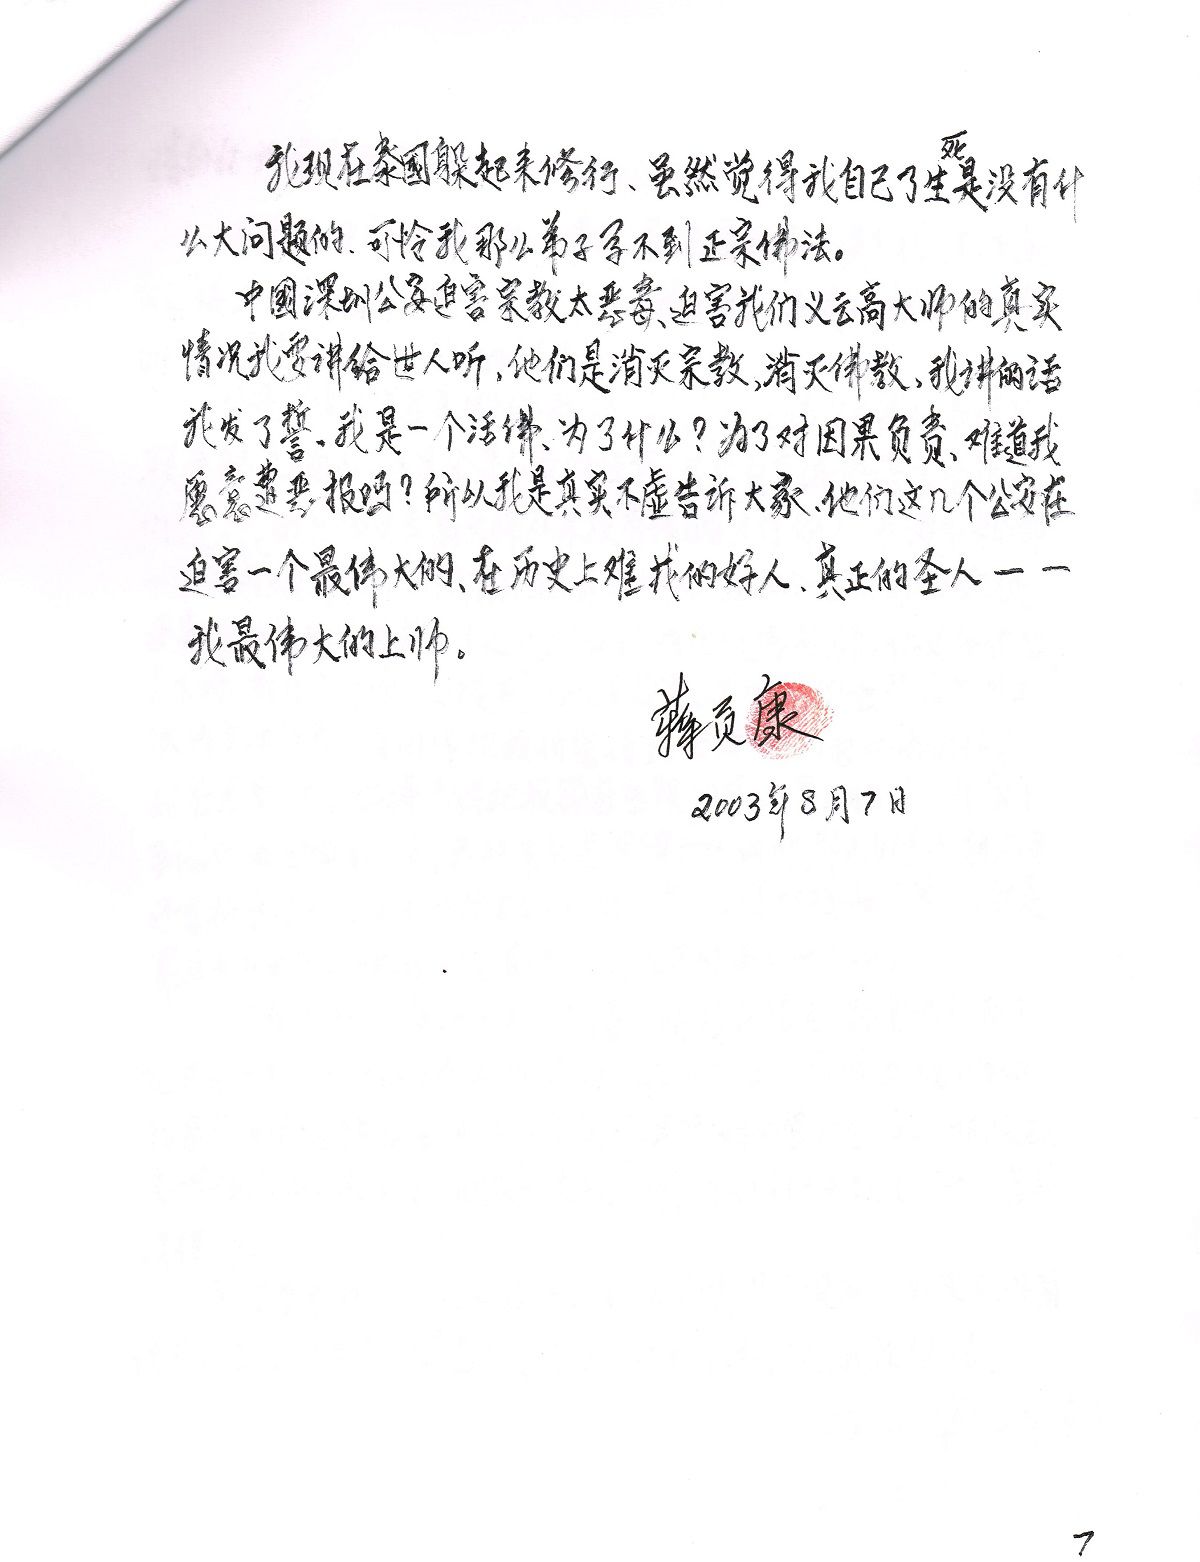 我现在泰國躲起来修行、虽然觉得我自己了生死是没有什
么大问题的、可怜我那么弟子学不到正宗佛法。
中國深圳公安迫害宗教太恶毒、迫害我们义云高大师的真实
情况我要讲给世人听，他们是消灭宗教、消灭佛教、我讲的话
我发了誓、我是一个活佛、为了什么？为了对因果负责、难道我
愿意遭恶报吗？所以我是真实不虚告诉大家、他们这几个公安在
迫害一个最伟大的、在历史上难找的好人、真正的圣人一一
我最伟大的上师。
蒋贡康
2003年8月7日
7